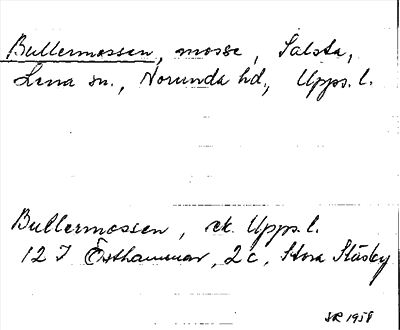 Bullermossen, mosse, Salsta,
Lena sn., Norunda hd., Upps. l.
Bullermossen, ek. Upps. l.
12 I Östhammar, 2c, Stora Stäsby
SR 1958